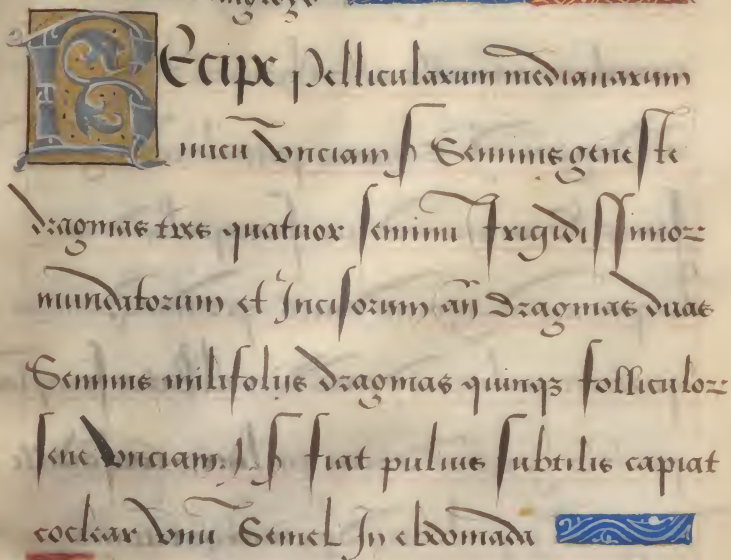 REcipe pellicularum medianarum
nucũ vnciam ß Seminis geneste
dragmas tres quatuor seminũ frigidissimoꝝ
mundatorum et Incisorum añ dragmas duas
Seminis milifolijs dragmas quinqꝫ folliculoꝝ
sene vnciam.j. ß fiat puluis subtilis capiat
coclear vnũ Semel In ebdomada